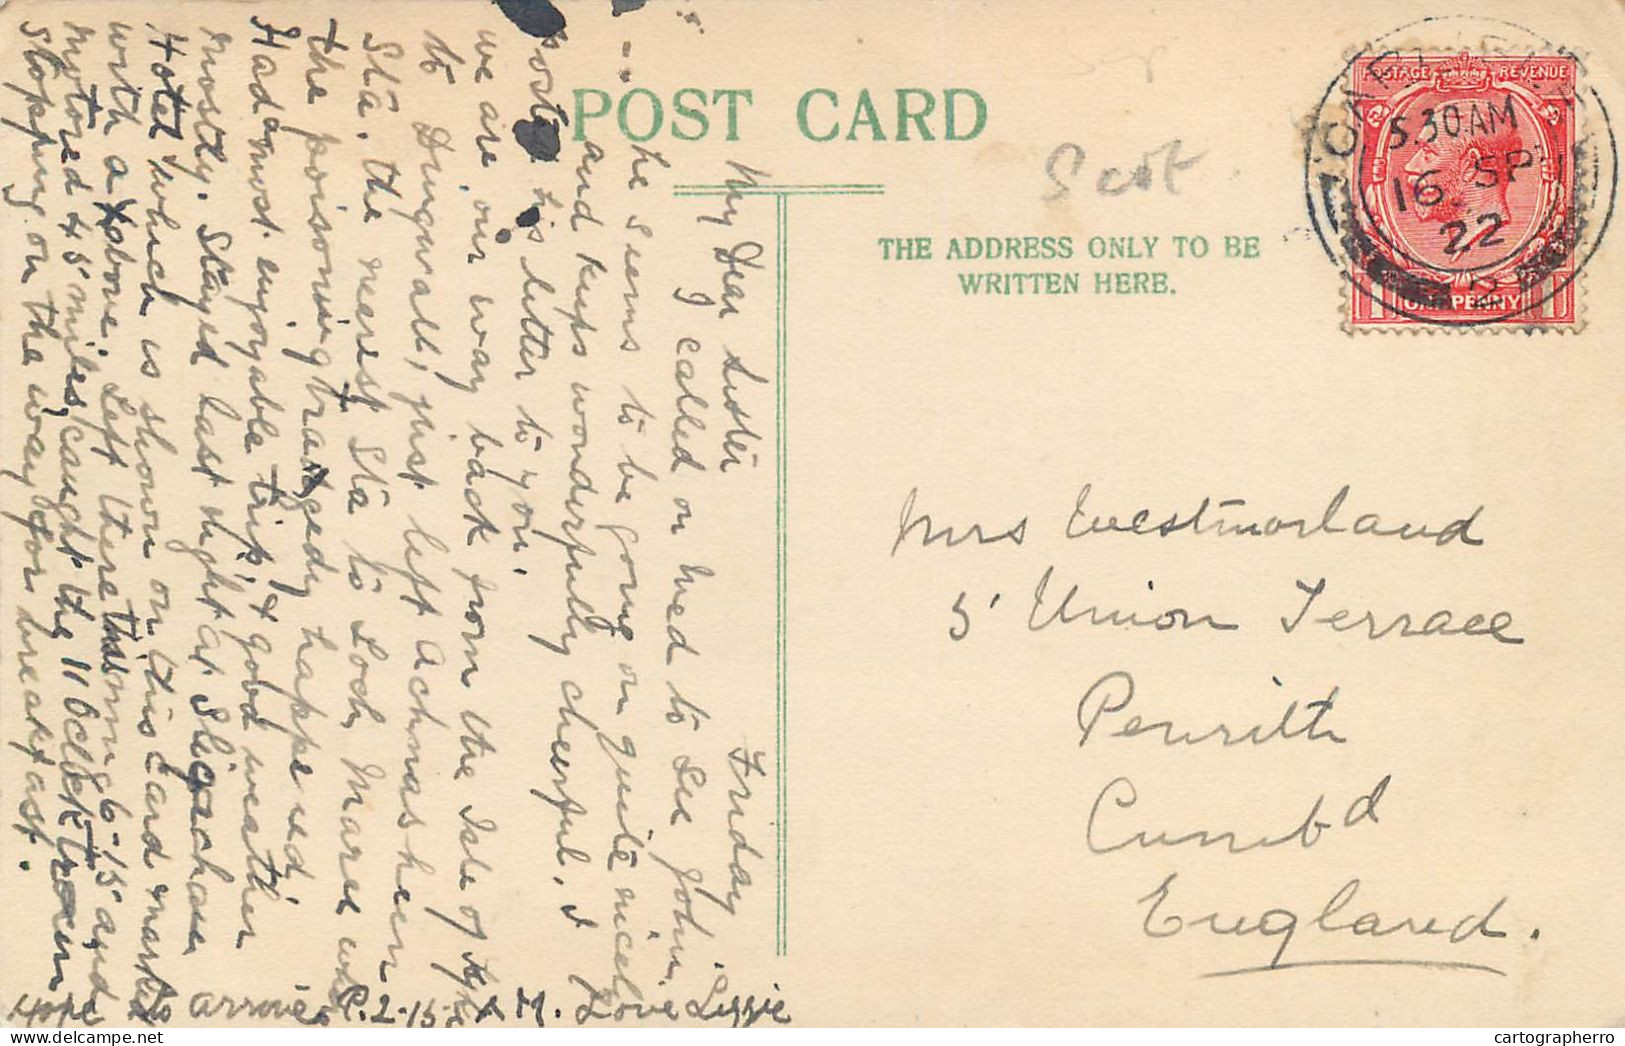 POST CARD
THE ADDRESS ONLY TO BE
WRITTEN HERE.
Scot.
POSTAGE REVENUE
ONE PENNY
5.30AM
16 SP
22
Friday
My Dear Sister
I called on Wed to see John,
he seems to be going on quite nicely
and keeps wonderfully cheerful. I
posted his letter to you.
we are on our way back from the Isle of Skye
to Dingwall, just left Achnasheen
Sta. the nearest Sta to Loch Maree where
the poisoning tragedy happened.
Had a most enjoyable trip, & good weather
mostly. Stayed last night at Sligachan
Hotel which is shown on this card marked
with a X above. Left there this morng 6-15 and
motored 45 miles, caught the 11 Oclock train
stopping on the way for breakfast.
Hope to arrive P. 2-15 A M. Love Lizzie
Mrs Westmorland
5 Union Terrace
Penrith
Cumbd
England.
cartographerro